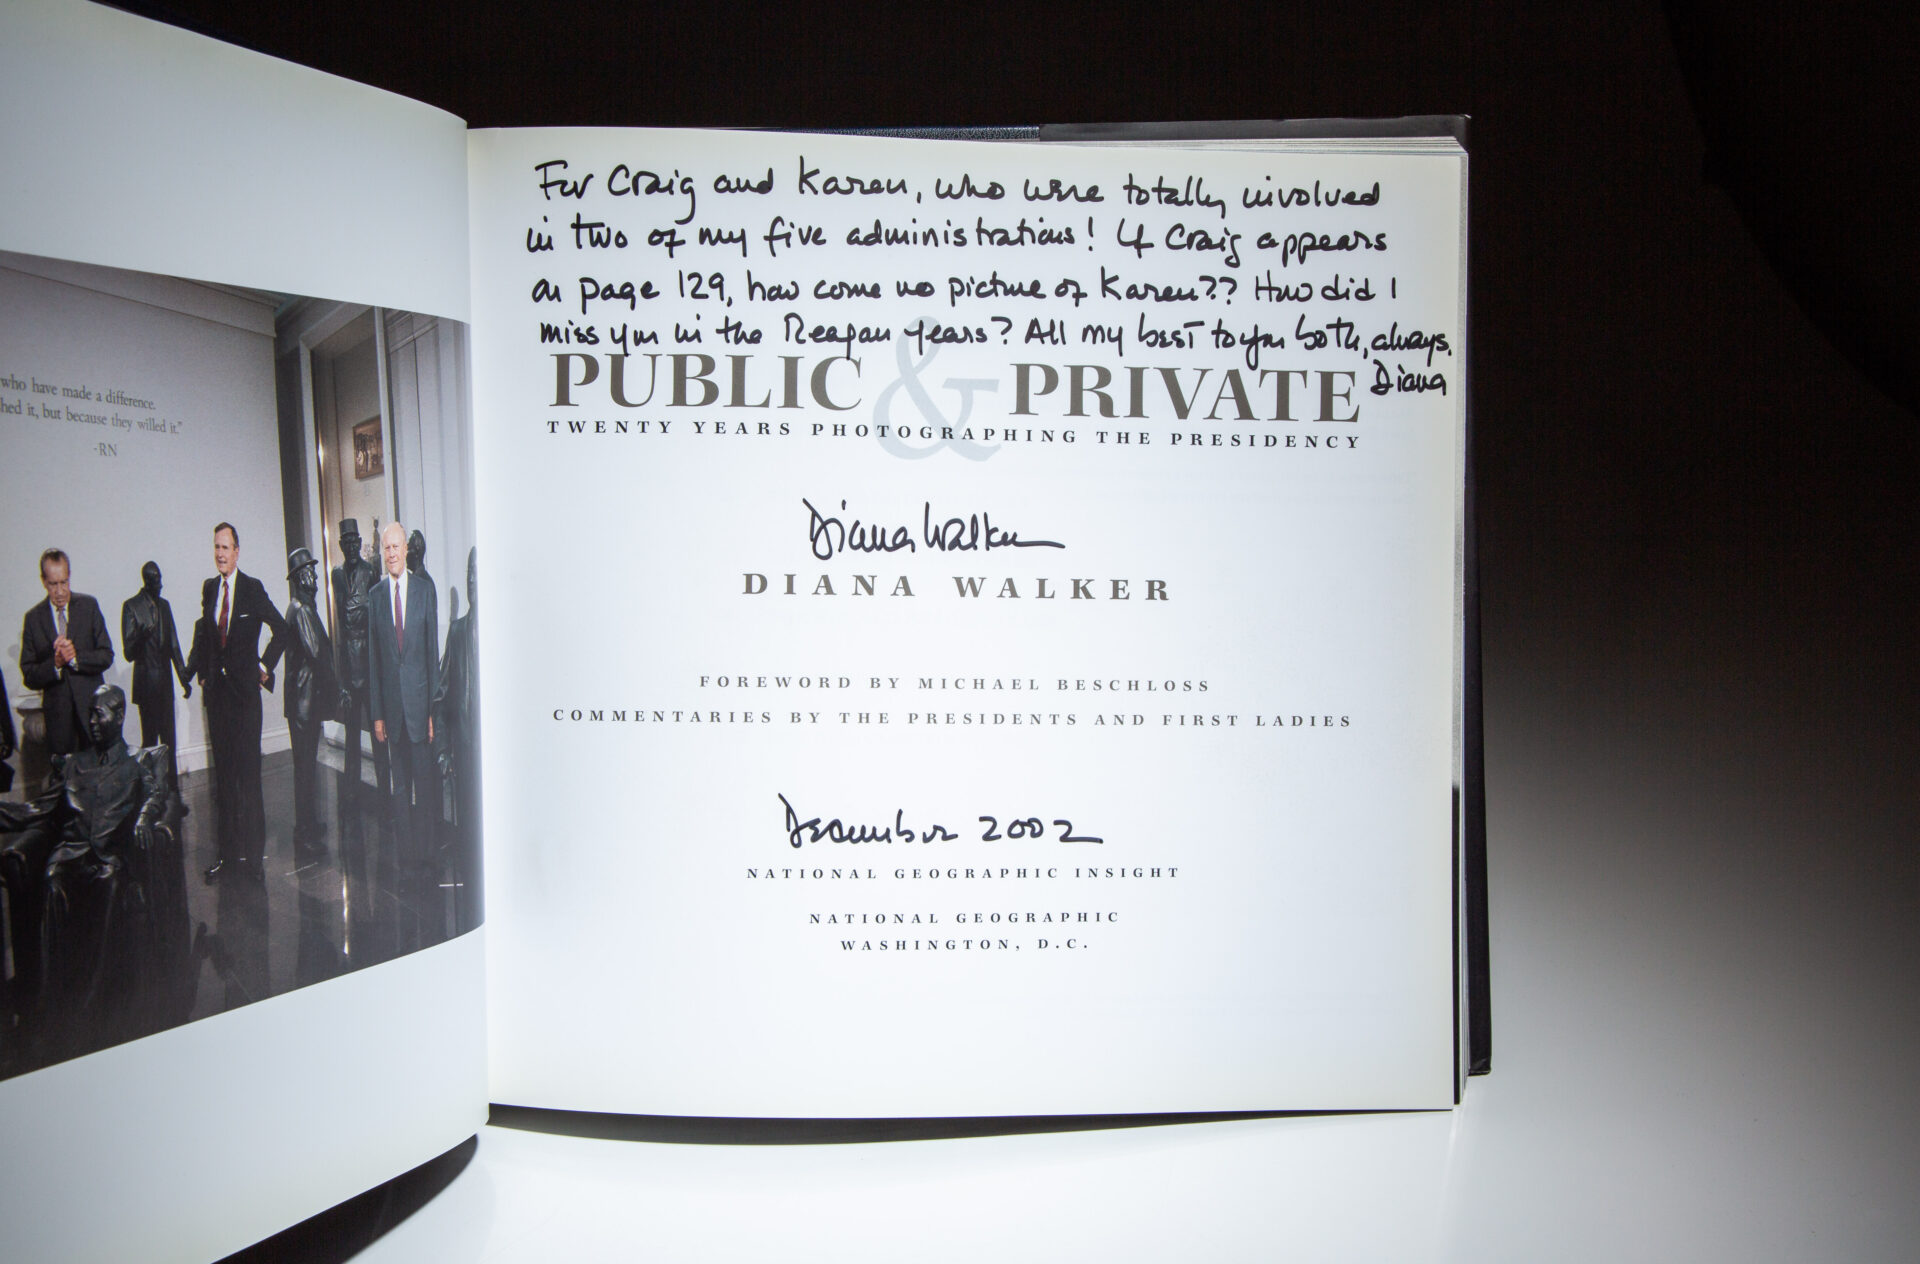 who have made a difference.
hed it, but because they willed it."
-RN
For Craig and Karen, who were totally involved
in two of my five administrations! If Craig appears
on page 129, how come no picture of Karen?? How did I
miss you in the Reagan years? All my best to you both, always,
Diana
PUBLIC & PRIVATE
TWENTY YEARS PHOTOGRAPHING THE PRESIDENCY
Diana Walker
DIANA WALKER
FOREWORD BY MICHAEL BESCHLOSS
COMMENTARIES BY THE PRESIDENTS AND FIRST LADIES
December 2002
NATIONAL GEOGRAPHIC INSIGHT
NATIONAL GEOGRAPHIC
WASHINGTON, D.C.